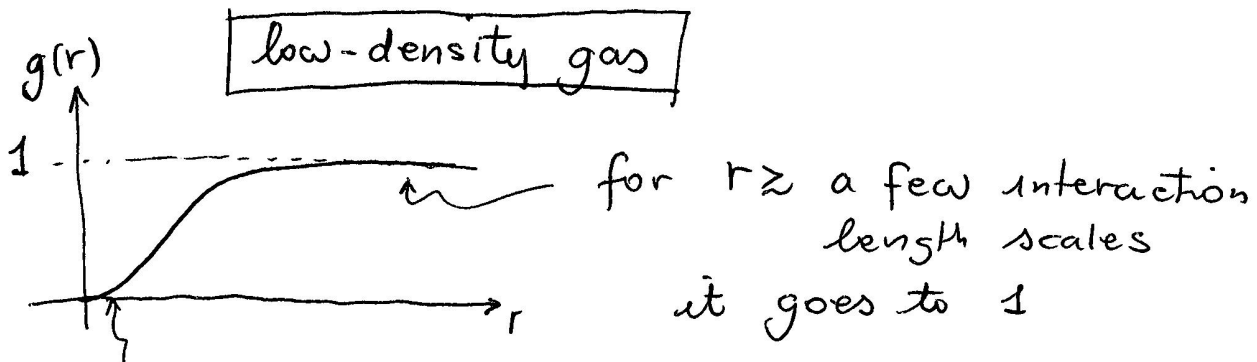 low-density gas
g(r)
1
for r ≳ a few interaction
length scales
it goes to 1
r